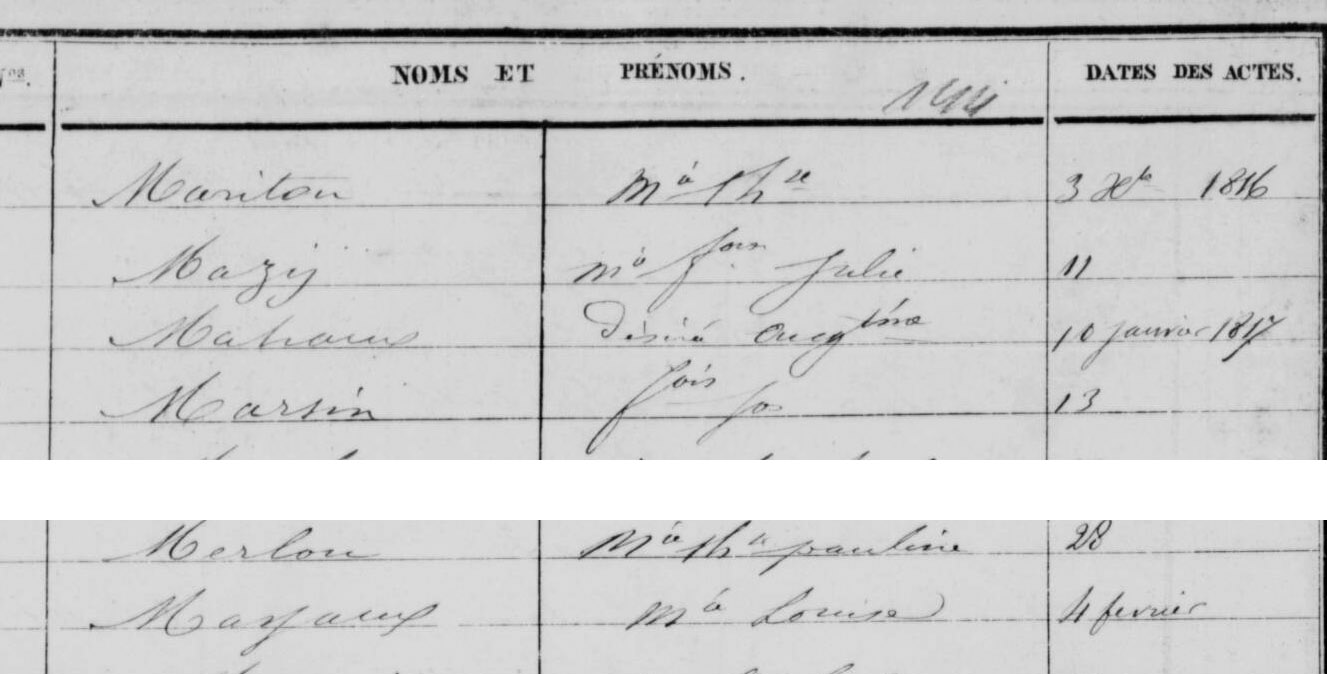 Nos. NOMS ET PRÉNOMS. DATES DES ACTES.
144
Mariton Mia Thse 3 Xbre 1816
Mazij Mia fcoise Julie 11
Mahaux Désiré Augtine 10 janvier 1817
Marsin fçois Jos 13
Merlou Mia Thse pauline 28
Mayaux Mia Louise 4 fevrier